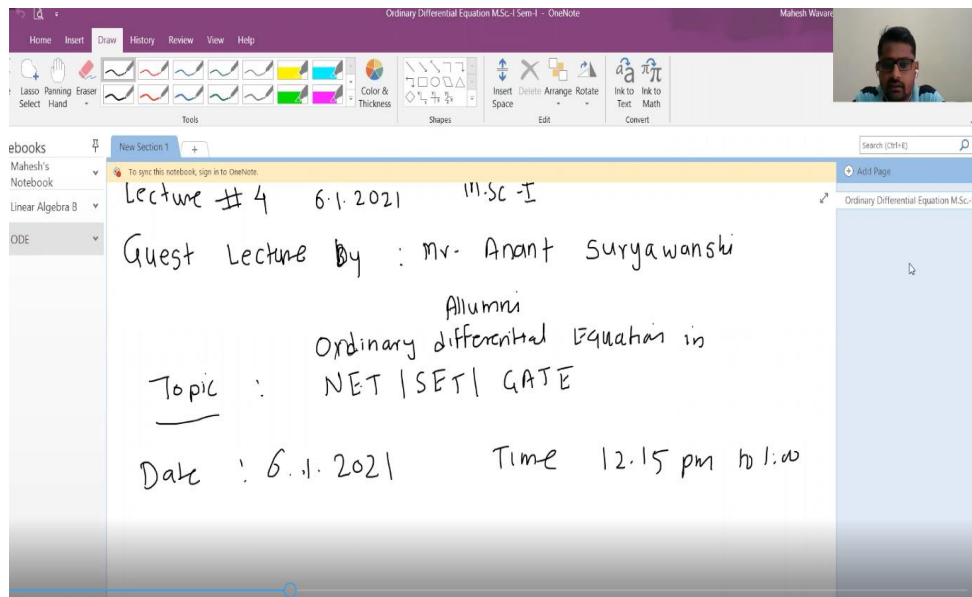 Ordinary Differential Equation M.Sc.-I Sem-I - OneNote
Mahesh Wavare
Home Insert Draw History Review View Help
Lasso Select
Panning Hand
Eraser
Color & Thickness
Insert Space
Delete
Arrange
Rotate
Ink to Text
Ink to Math
Tools
Shapes
Edit
Convert
ebooks
New Section 1
+
Search (Ctrl+E)
Mahesh's Notebook
To sync this notebook, sign in to OneNote.
Add Page
Linear Algebra B
Ordinary Differential Equation M.Sc.-
ODE
Lecture # 4 6.1.2021 M.Sc-I
Guest Lecture by : Mr. Anant Suryawanshi
Allumni
Ordinary differential Equation in
Topic : NET | SET | GATE
Date : 6.1.2021 Time 12.15 pm to 1:00